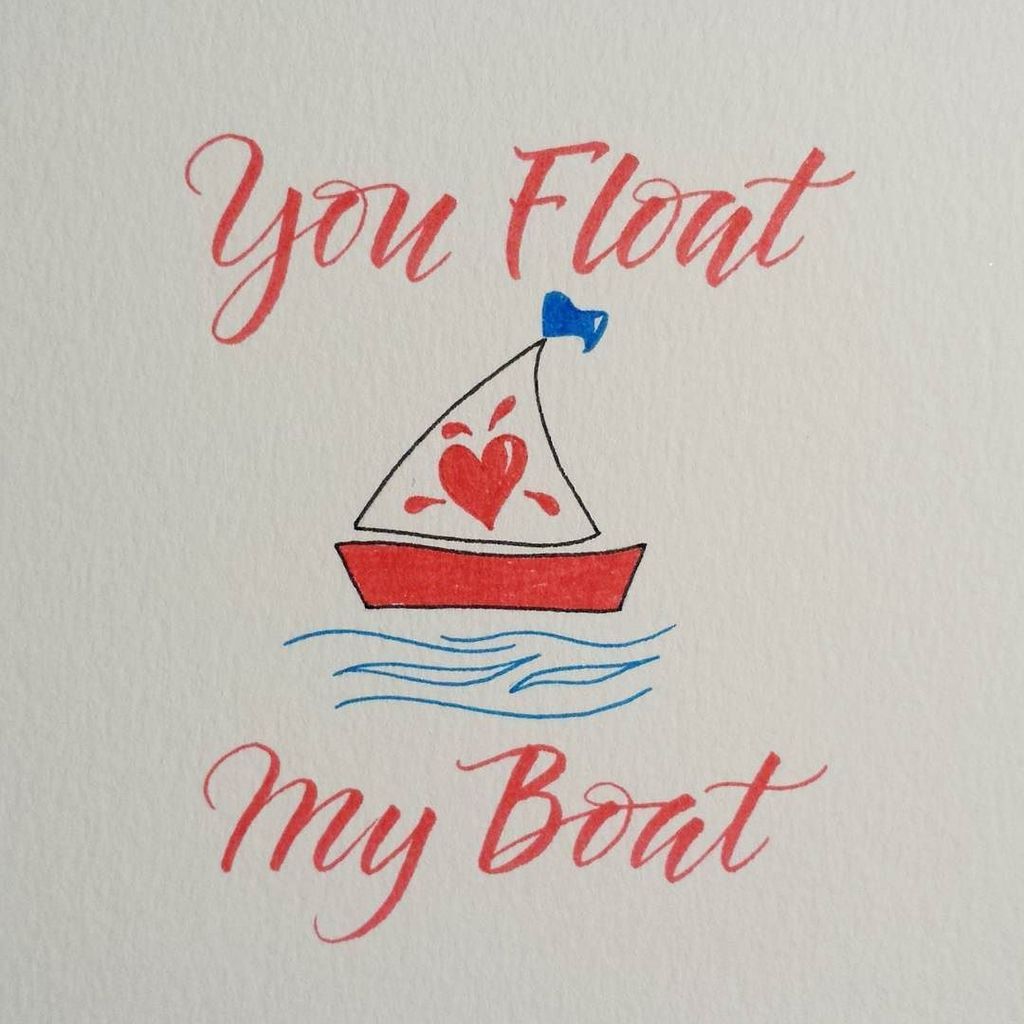 You Float
My Boat